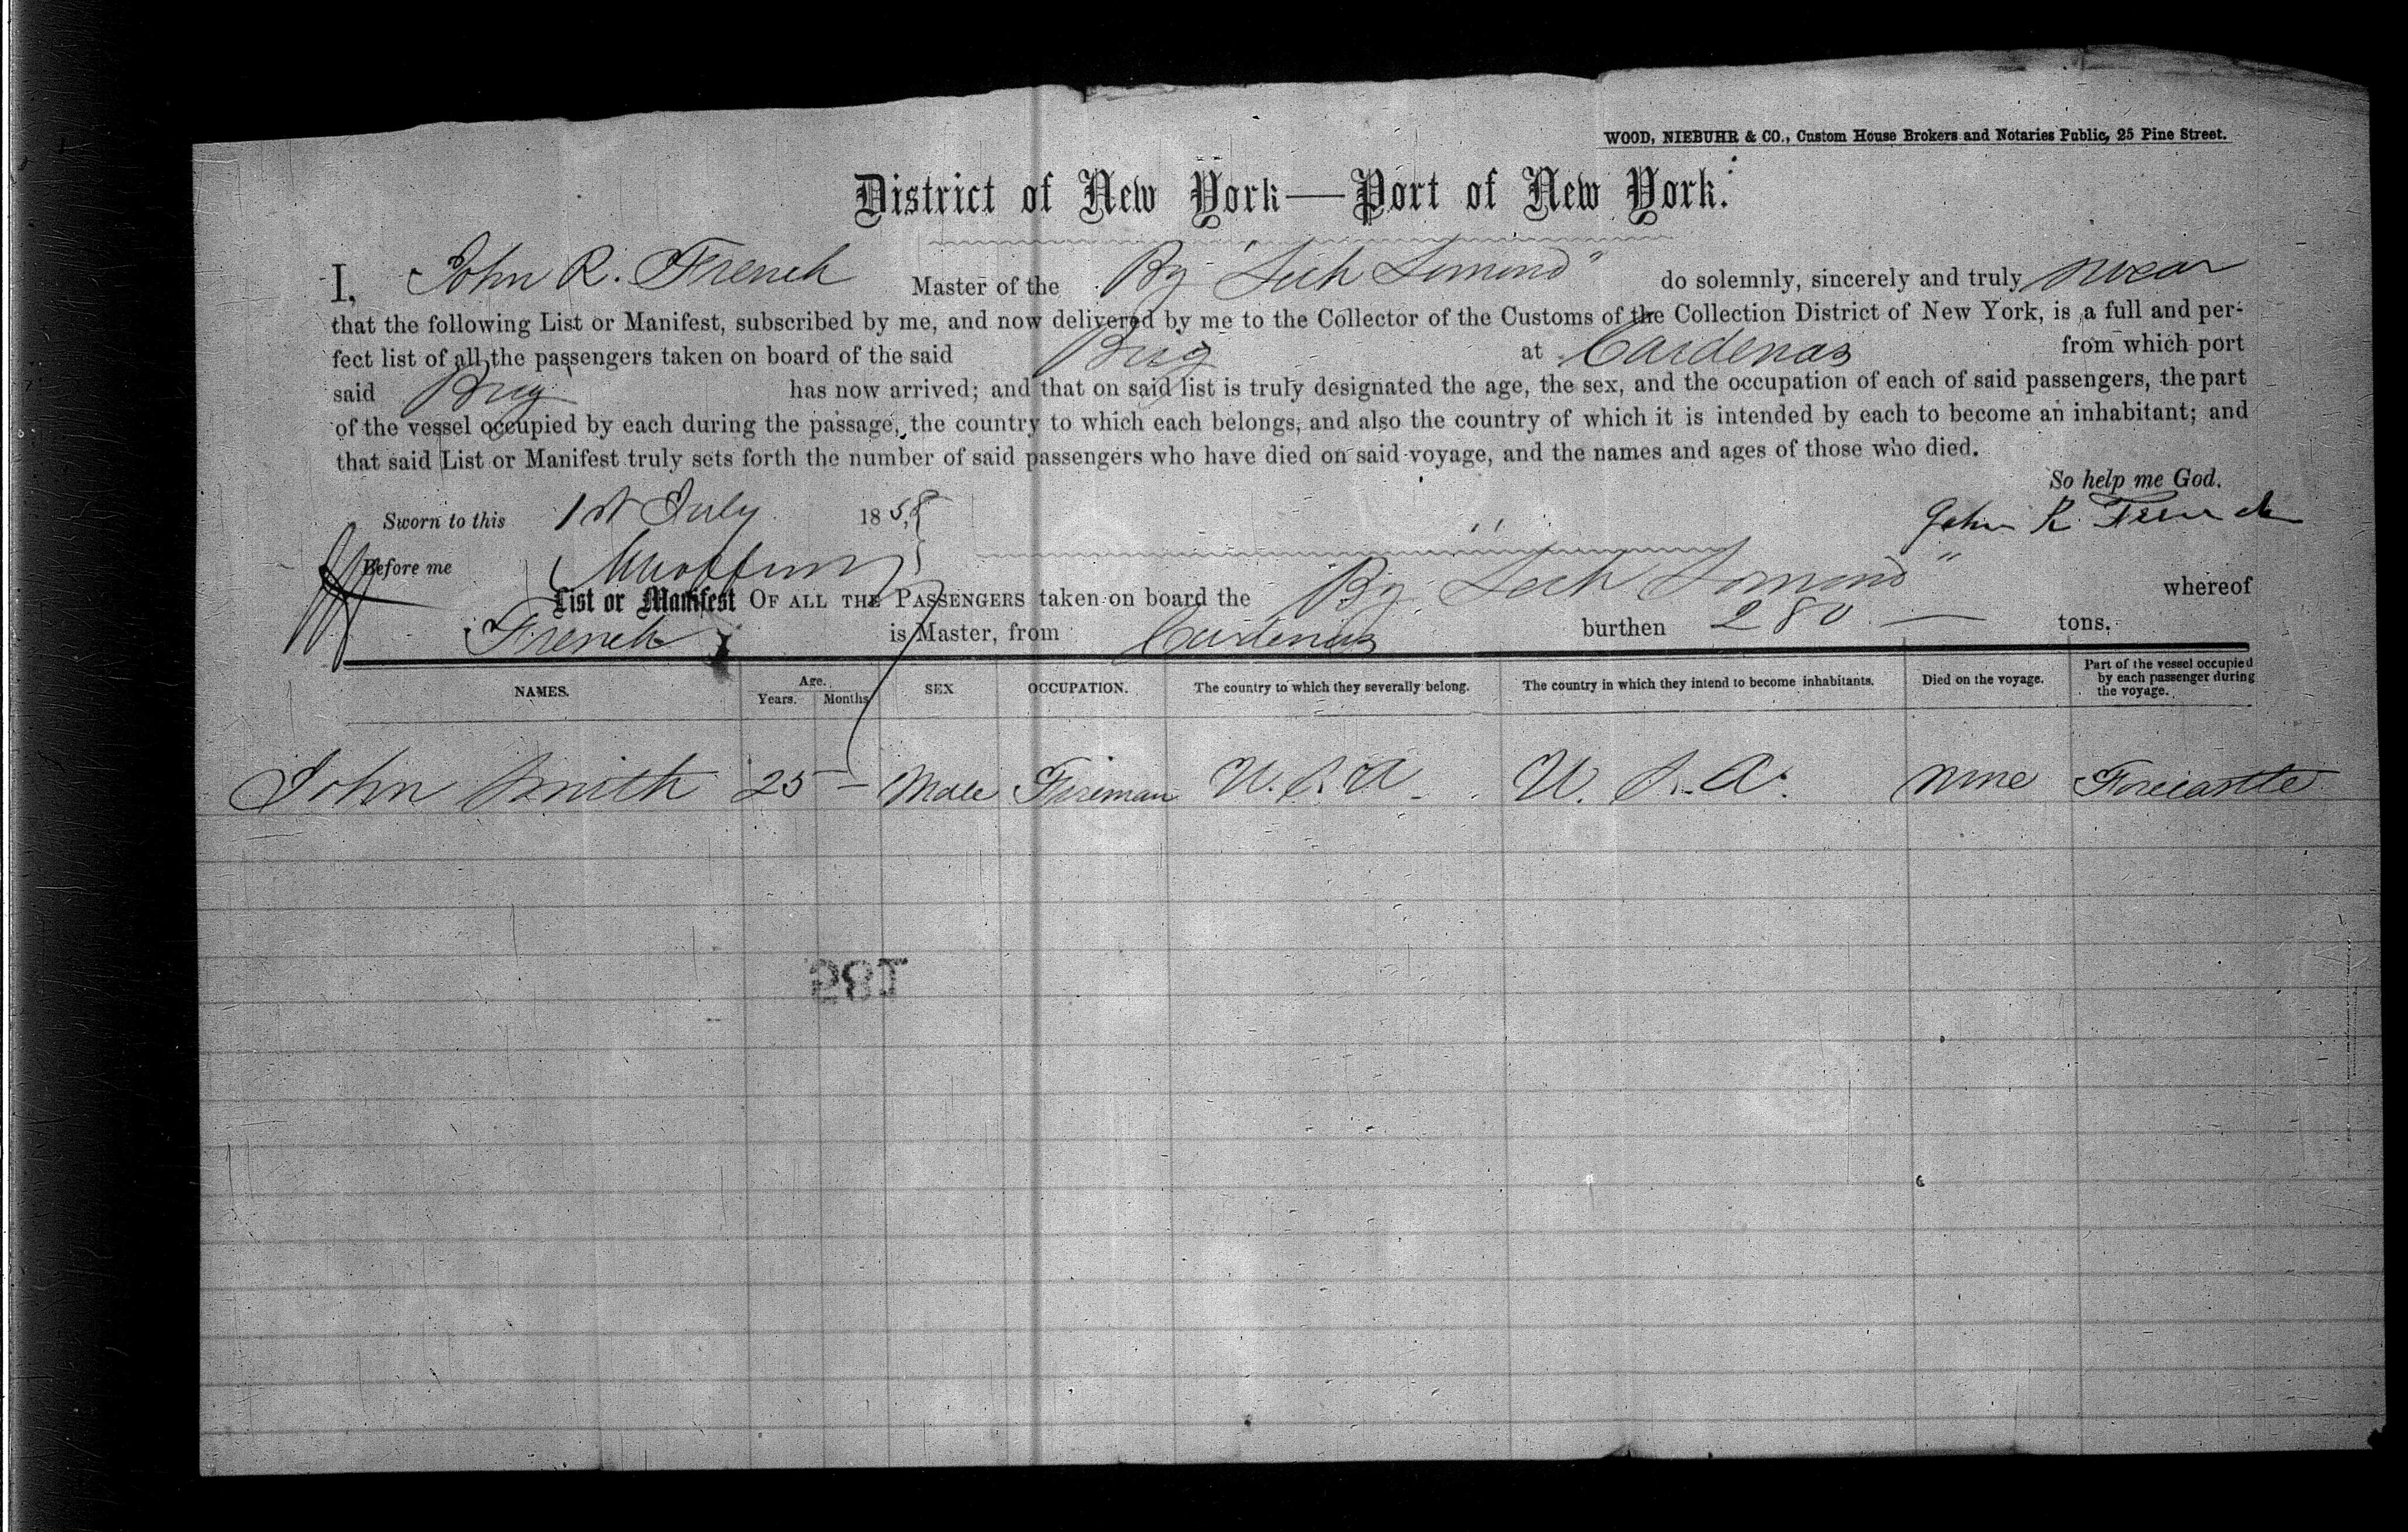 WOOD, NIEBUHR & CO., Custom House Brokers and Notaries Public, 25 Pine Street.
District of New York—Port of New York.
I, John R. French Master of the Bg "Loch Lomond" do solemnly, sincerely and truly swear
that the following List or Manifest, subscribed by me, and now delivered by me to the Collector of the Customs of the Collection District of New York, is a full and per-
fect list of all the passengers taken on board of the said Brig at Cardenas from which port
said Brig has now arrived; and that on said list is truly designated the age, the sex, and the occupation of each of said passengers, the part
of the vessel occupied by each during the passage, the country to which each belongs, and also the country of which it is intended by each to become an inhabitant; and
that said List or Manifest truly sets forth the number of said passengers who have died on said voyage, and the names and ages of those who died.
So help me God.
Sworn to this 1st July 1858 John R. French
Before me
List or Manifest OF ALL THE PASSENGERS taken on board the Bg. Loch Lomond" whereof
French is Master, from Cardenas burthen 280 — tons.
NAMES. Age. Years. Months SEX OCCUPATION. The country to which they severally belong. The country in which they intend to become inhabitants. Died on the voyage. Part of the vessel occupied by each passenger during the voyage.
John Smith 25 – Male Fireman U.S.A. U.S.A. None Forecastle
185